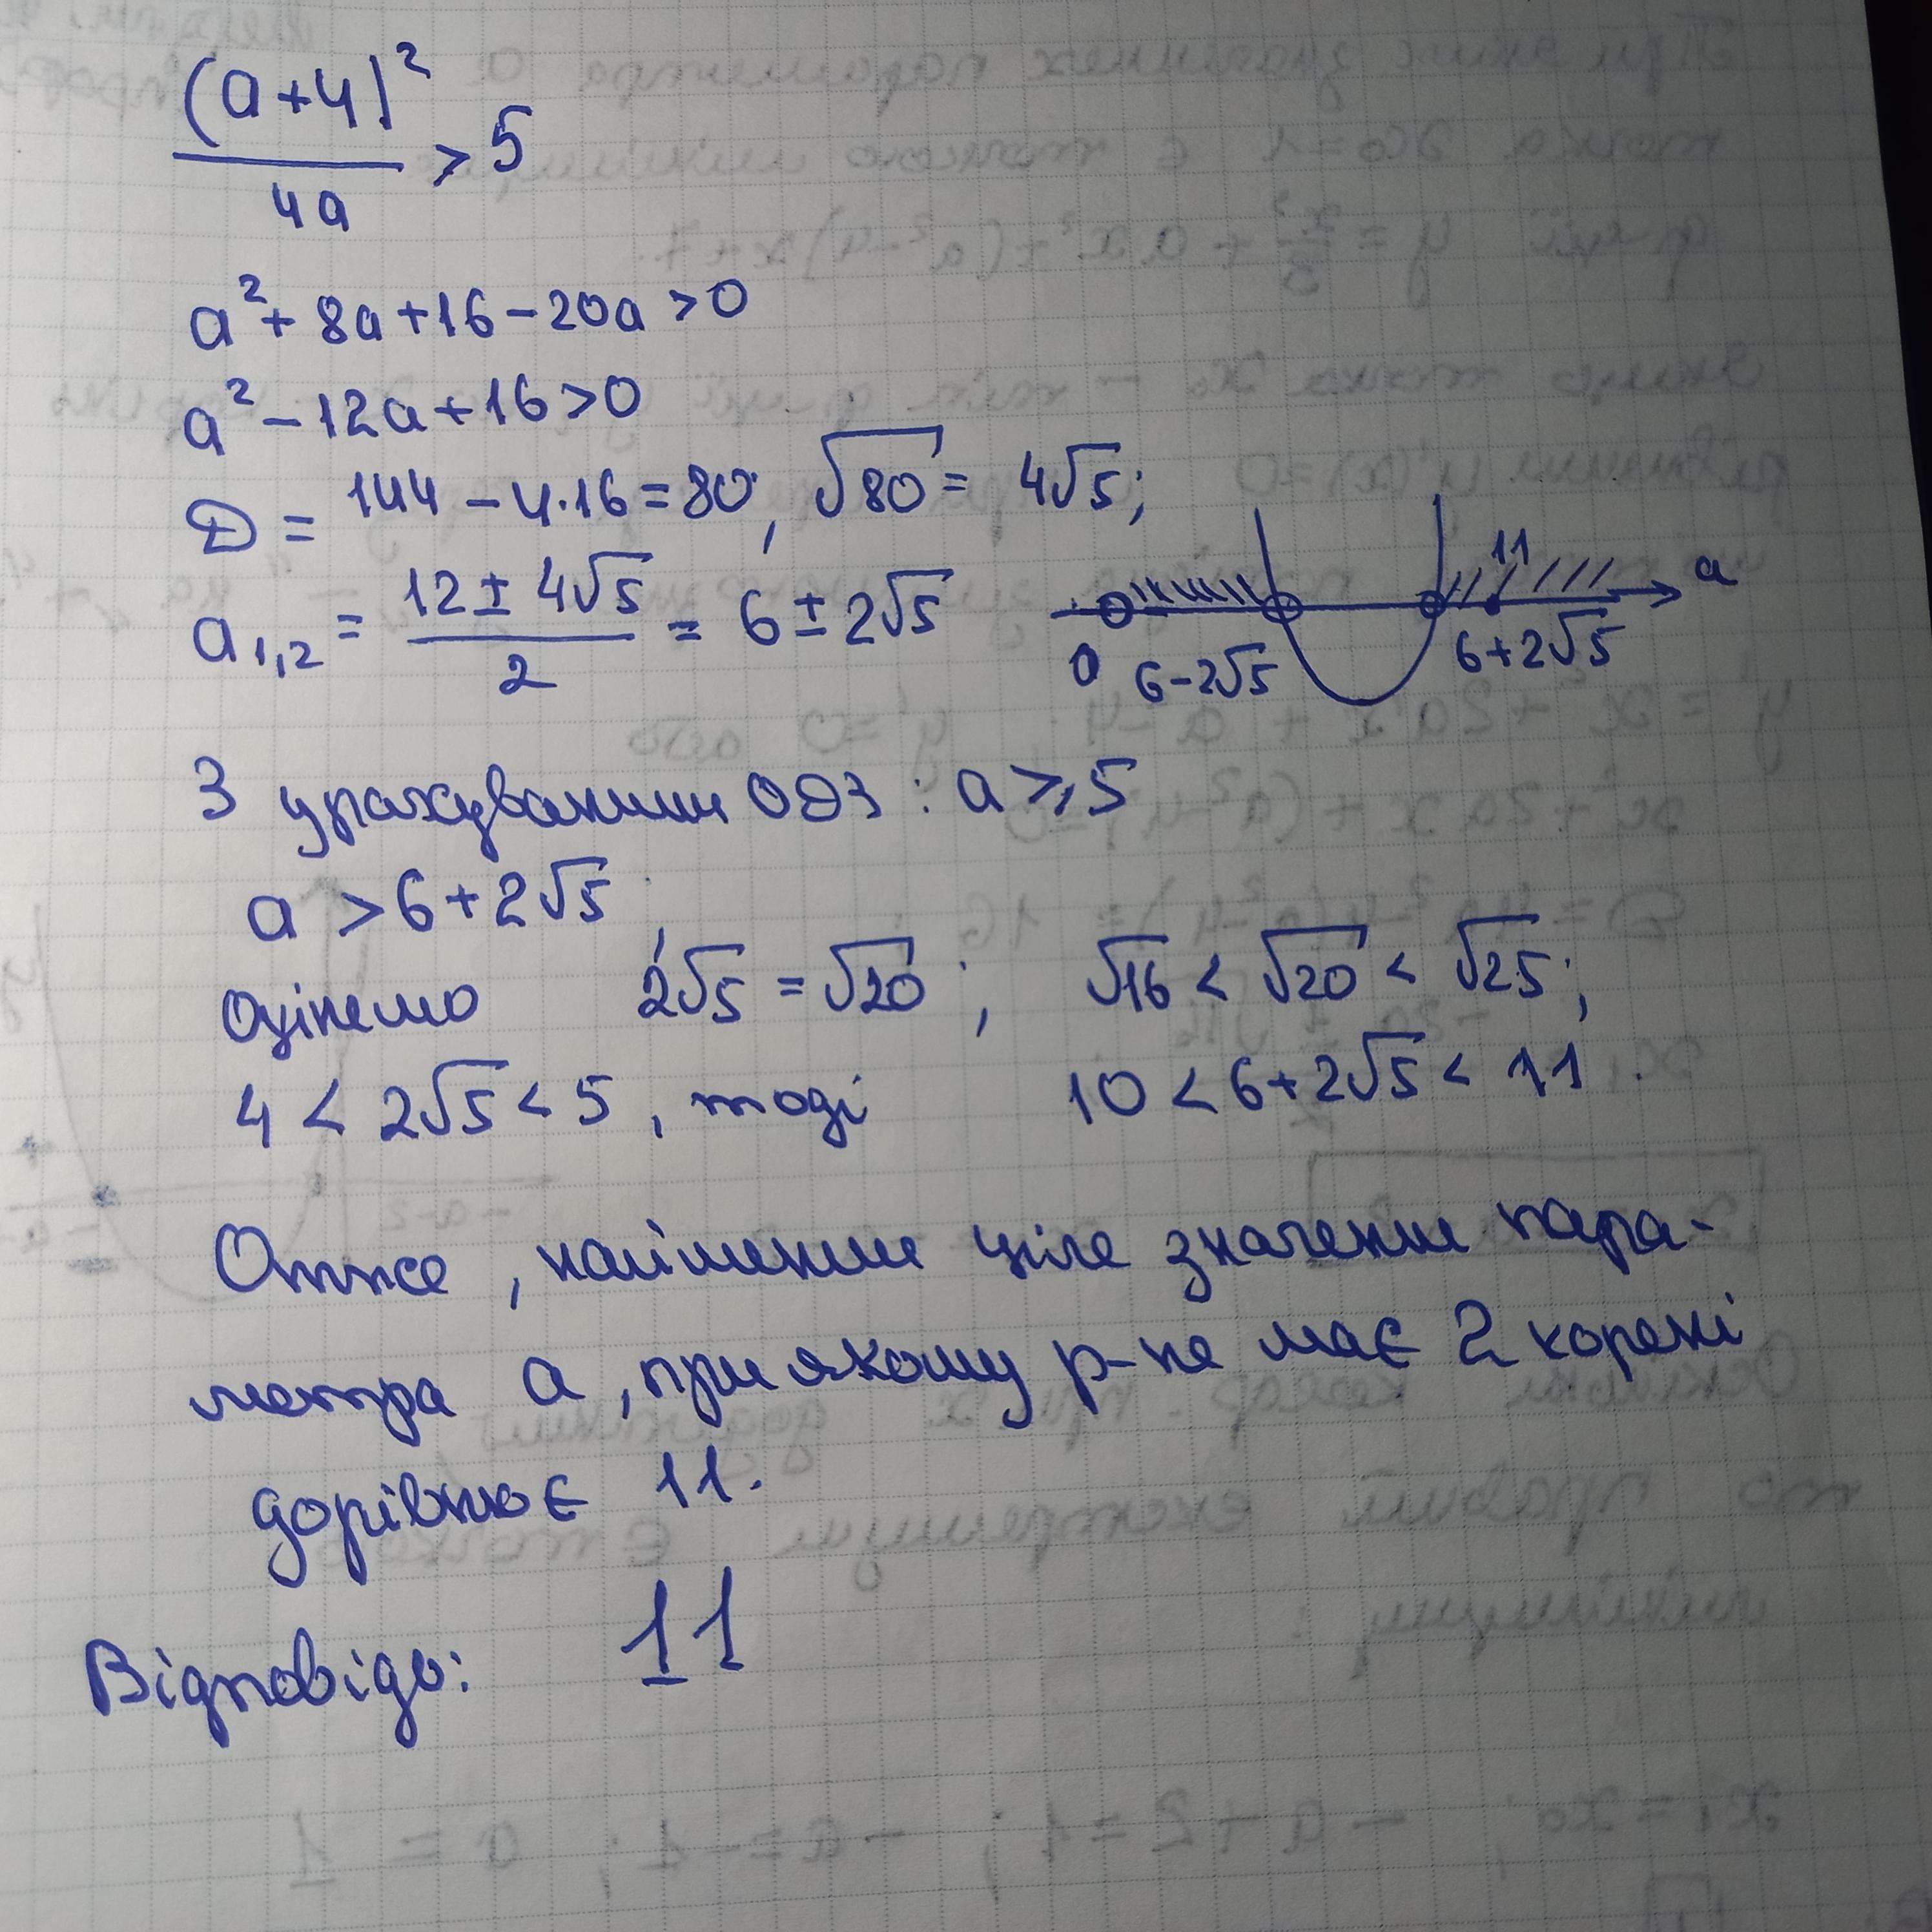 (a+4)² / 4a > 5
a² + 8a + 16 - 20a > 0
a² - 12a + 16 > 0
D = 144 - 4·16 = 80, √80 = 4√5;
a₁,₂ = (12 ± 4√5) / 2 = 6 ± 2√5
0 6-2√5 6+2√5 11 a
З урахуванням ОДЗ: a ⩾ 5
a > 6 + 2√5,
оцінемо 2√5 = √20; √16 < √20 < √25;
4 < 2√5 < 5, тоді 10 < 6+2√5 < 11.
Отже, найменше ціле значення пара-
метра a, при якому р-не має 2 корені
дорівнює 11.
Відповідь: 11